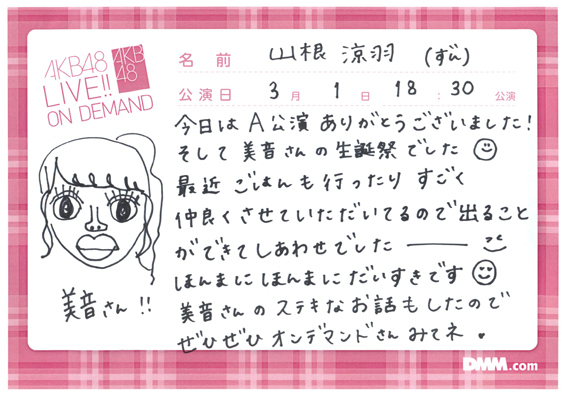 AKB48
LIVE!!
ON DEMAND
AKB
48
名前 山根 涼羽 (ずん)
公演日 3月 1日 18:30 公演
今日は A公演 ありがとうございました!
そして 美音さんの生誕祭でした
最近 ごはんも行ったり すごく
仲良くさせていただいてるので出ること
ができてしあわせでした ――
ほんまにほんまに だいすきです
美音さんの ステキなお話もしたので
ぜひぜひ オンデマンドさん みてネ
美音さん!!
DMM.com